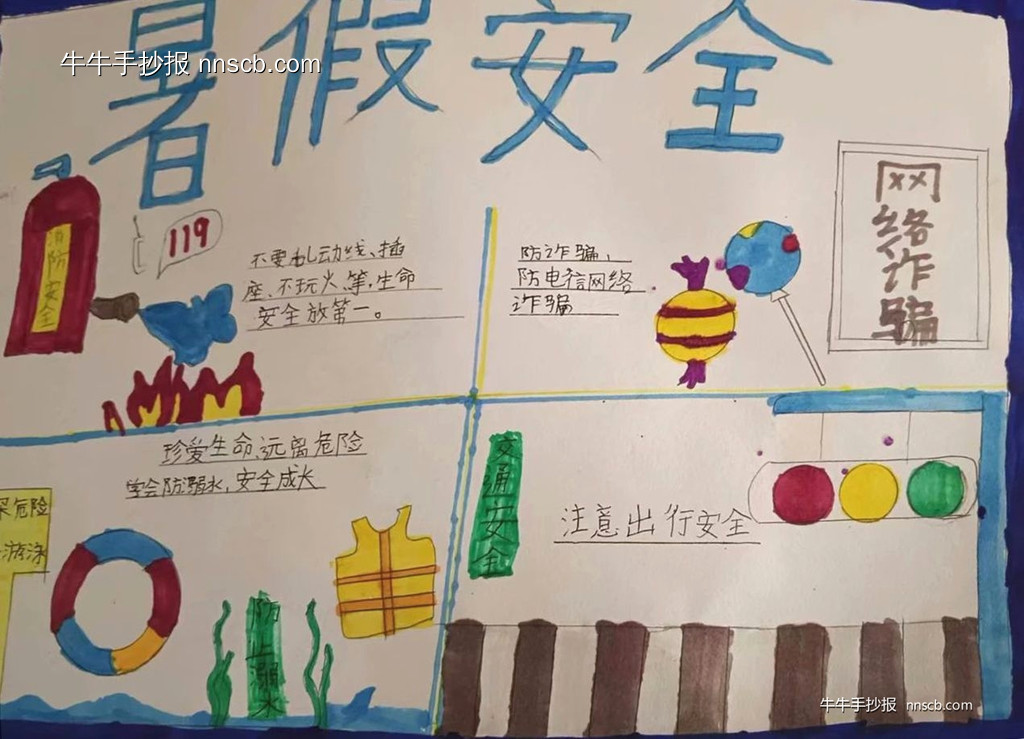 暑假安全
牛牛手抄报 nnscb.com
消防安全
119
不要乱动线、插
座、不玩火等,生命
安全放第一。
防诈骗、
防电信网络
诈骗
网络诈骗
珍爱生命、远离危险
学会防溺水,安全成长
深危险
游泳
防止溺水
交通安全
注意出行安全
牛牛手抄报 nnscb.com